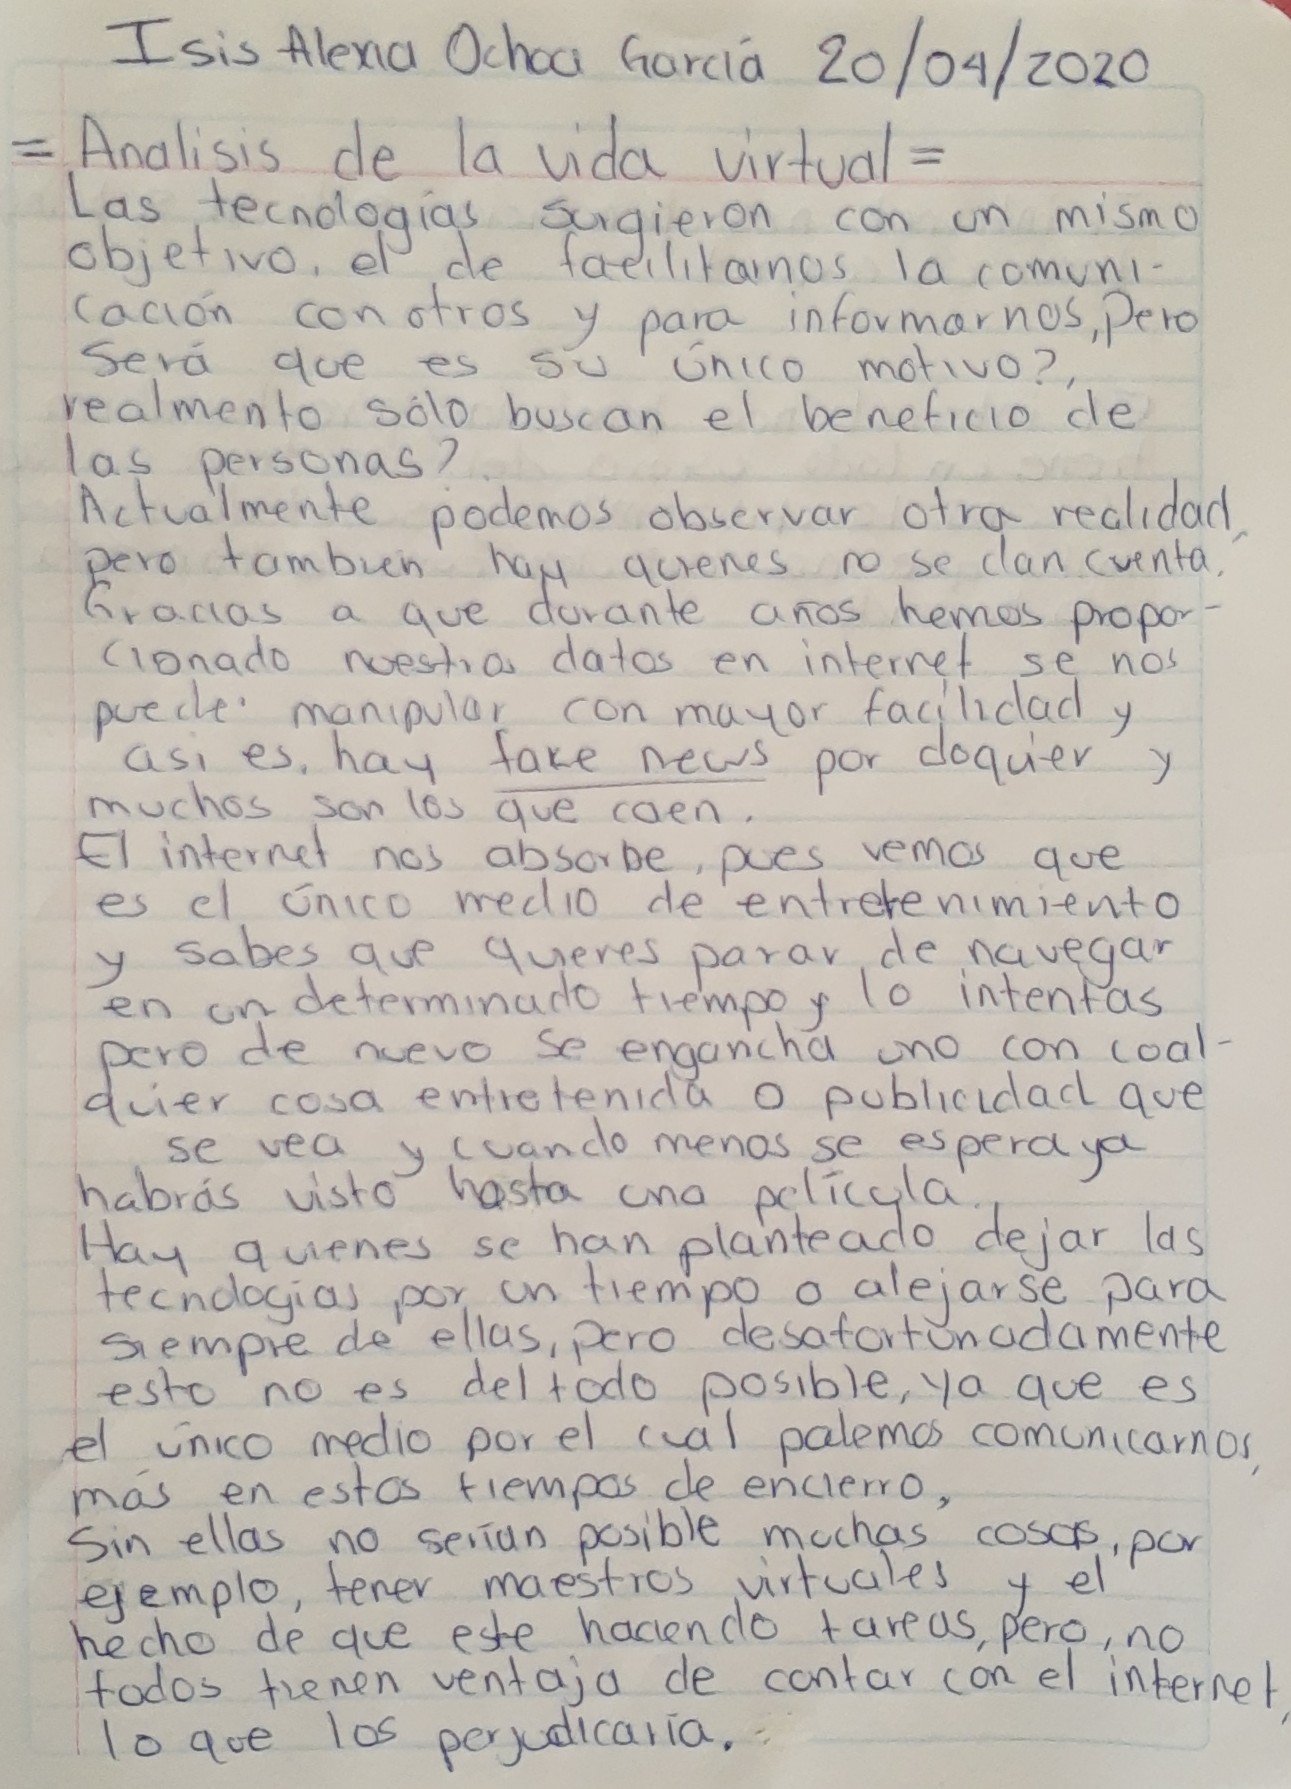 Isis Alexia Ochoa García 20/04/2020
= Analisis de la vida virtual =
Las tecnologías surgieron con un mismo
objetivo, el de facilitarnos la comuni-
cación con otros y para informarnos, Pero
será que es su único motivo?,
realmento sólo buscan el beneficio de
las personas?
Actualmente podemos observar otra realidad,
pero tambien hay quienes no se dan cuenta.
Gracias a que durante años hemos propor-
cionado nuestros datos en internet se nos
puede manipular con mayor facilidad y
asi es, hay fake news por doquier y
muchos son los que caen.
El internet nos absorbe, pues vemos que
es el único medio de entretenimiento
y sabes que quieres parar de navegar
en un determinado tiempo y lo intentas
pero de nuevo se engancha uno con coal-
quier cosa entretenida o publicidad que
se vea y cuando menos se espera ya
habrás visto hasta una película.
Hay quienes se han planteado dejar las
tecnologías por un tiempo o alejarse para
siempre de ellas, pero desafortunadamente
esto no es del todo posible, ya que es
el único medio por el cual podemos comunicarnos,
más en estos tiempos de encierro,
Sin ellas no serían posible muchas cosas, por
ejemplo, tener maestros virtuales y el
hecho de que este haciendo tareas, pero, no
todos tienen ventaja de contar con el internet,
lo que los perjudicaría.